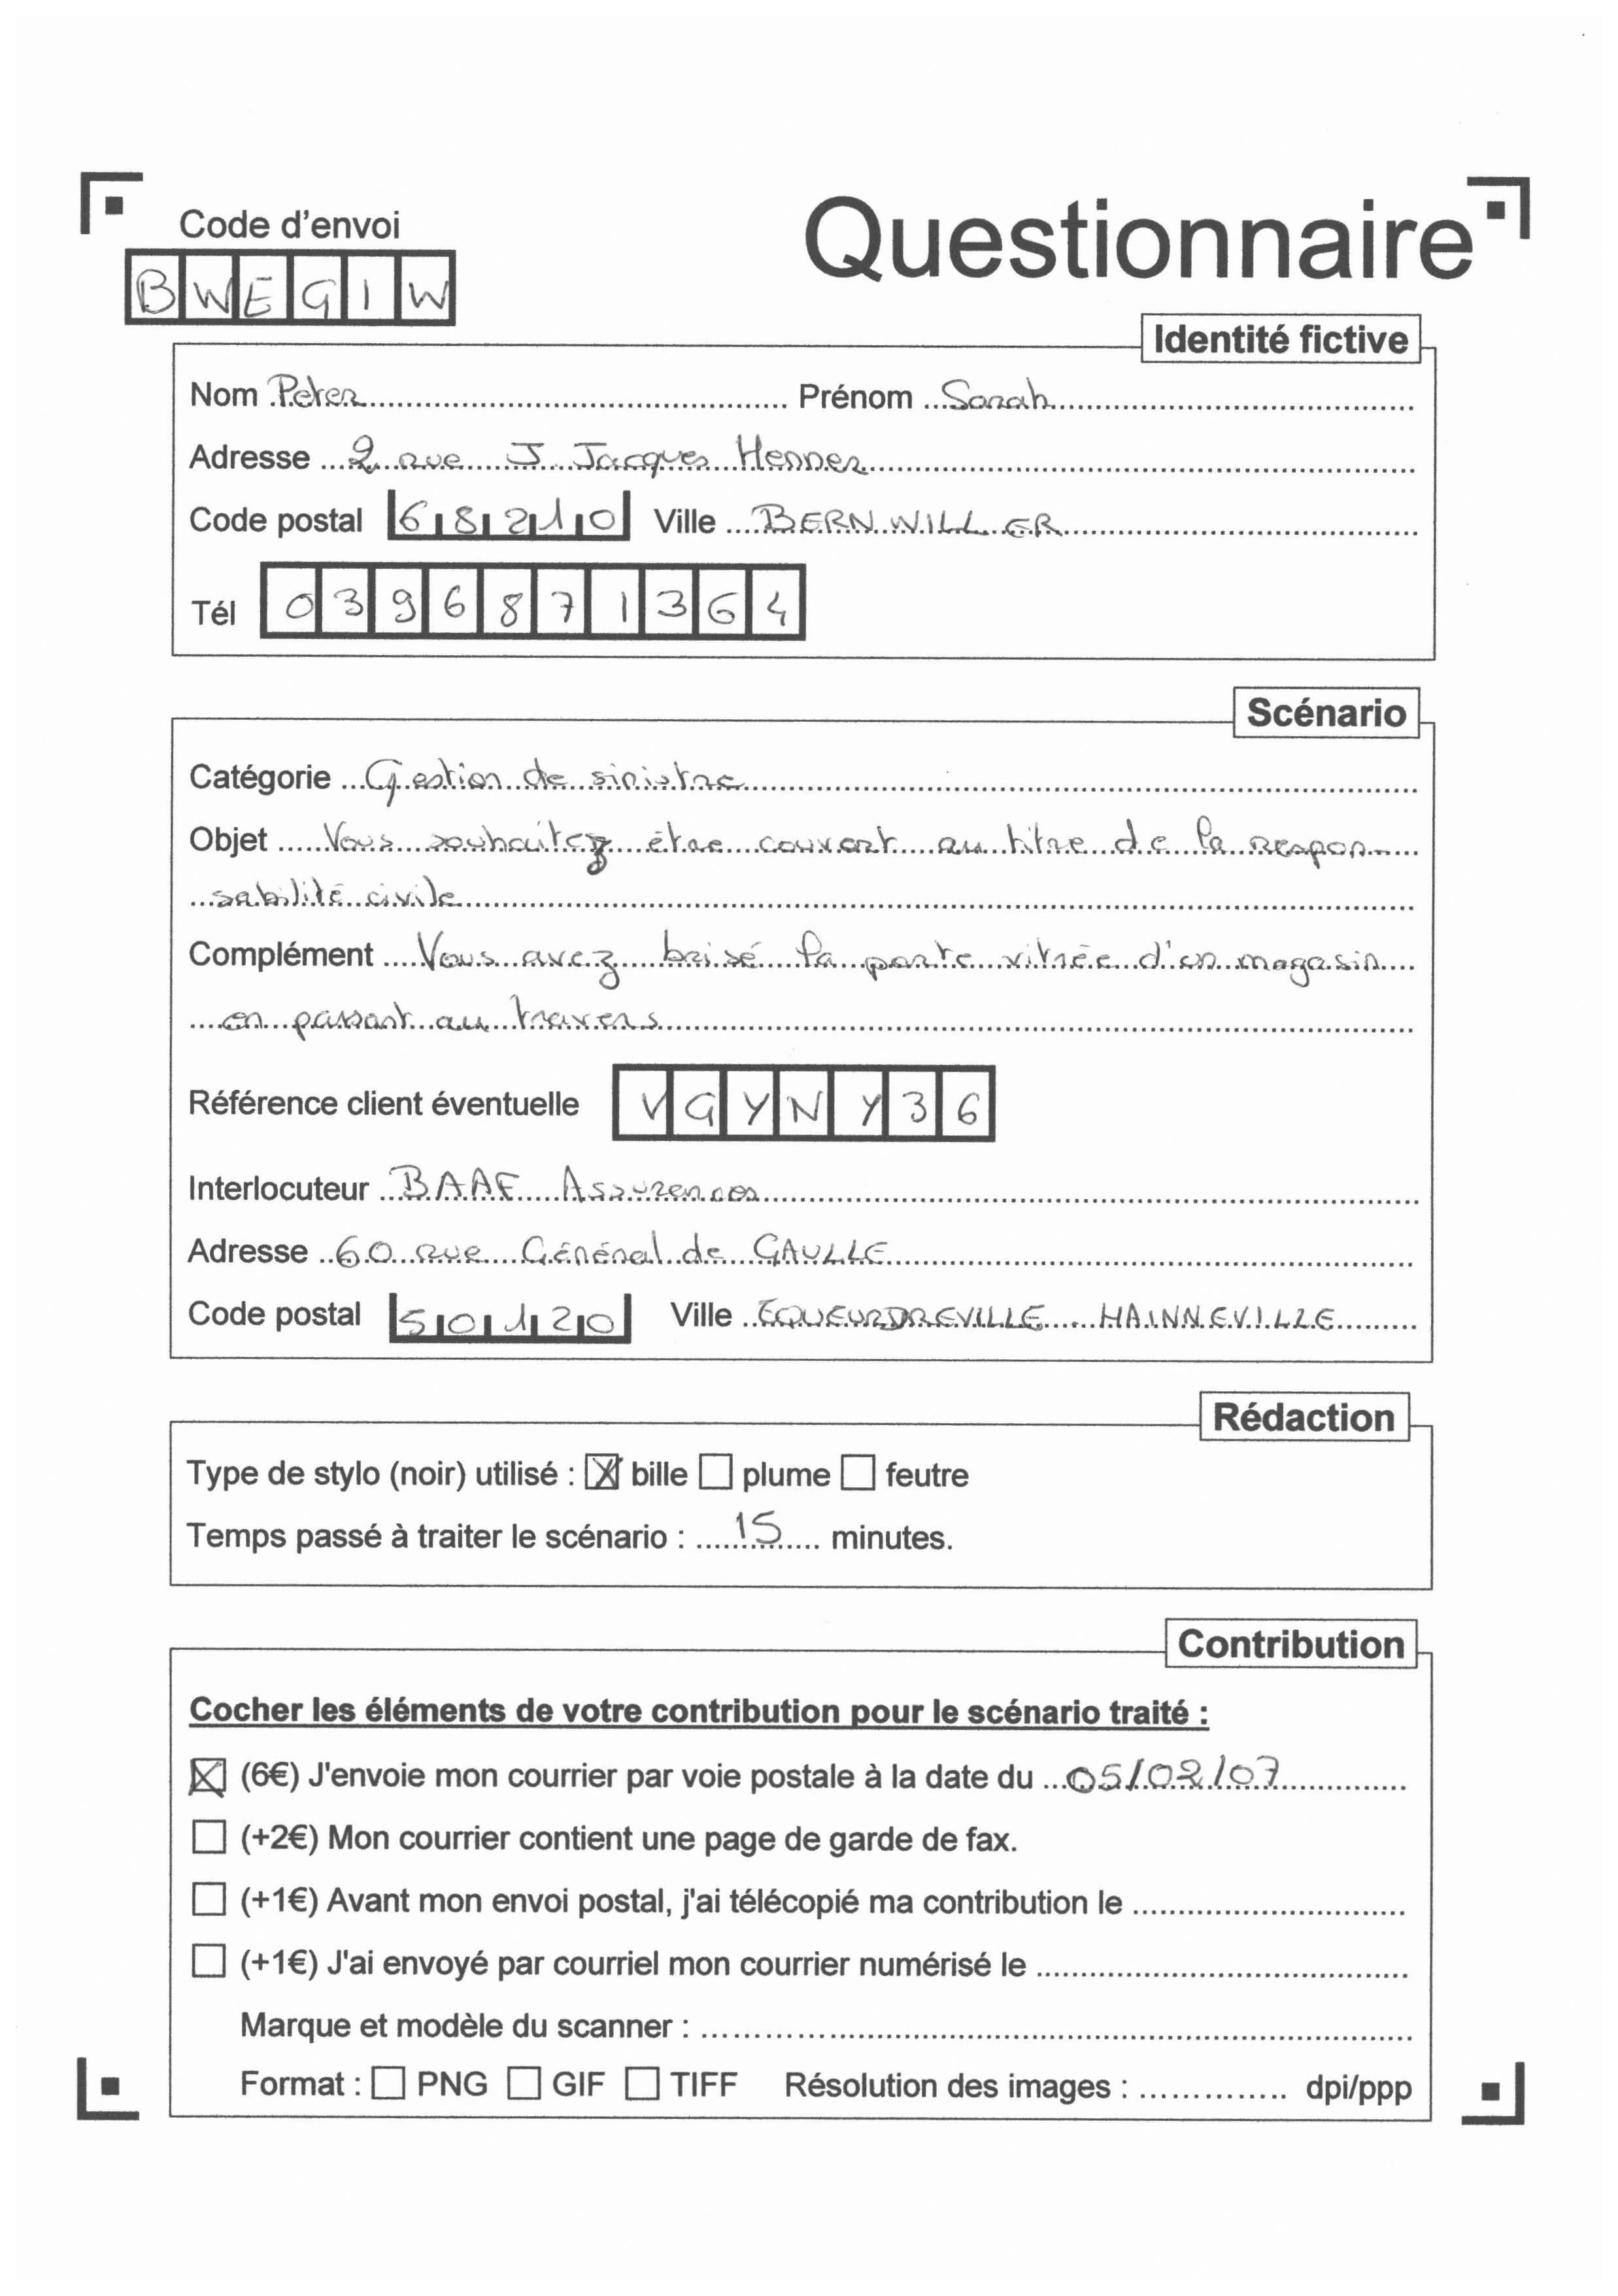 Code d'envoi
Questionnaire
BWEGIW
Identité fictive
Nom Peter Prénom Sarah
Adresse 2 rue J. Jacques Henner
Code postal 68210 Ville BERNWILLER
Tél 0396871364
Scénario
Catégorie Gestion de sinistre
Objet Vous souhaitez être couvert au titre de la respon-
sabilité civile
Complément Vous avez brisé la porte vitrée d'un magasin
en passant au travers
Référence client éventuelle VGYNY36
Interlocuteur BAAF Assurances
Adresse 60 rue Général de GAULLE
Code postal 50120 Ville EQUEURDREVILLE HAINNEVILLE
Rédaction
Type de stylo (noir) utilisé : ☒ bille ☐ plume ☐ feutre
Temps passé à traiter le scénario : 15 minutes.
Contribution
Cocher les éléments de votre contribution pour le scénario traité :
☒ (6€) J'envoie mon courrier par voie postale à la date du 05/02/07
☐ (+2€) Mon courrier contient une page de garde de fax.
☐ (+1€) Avant mon envoi postal, j'ai télécopié ma contribution le
☐ (+1€) J'ai envoyé par courriel mon courrier numérisé le
Marque et modèle du scanner :
Format : ☐ PNG ☐ GIF ☐ TIFF Résolution des images : dpi/ppp